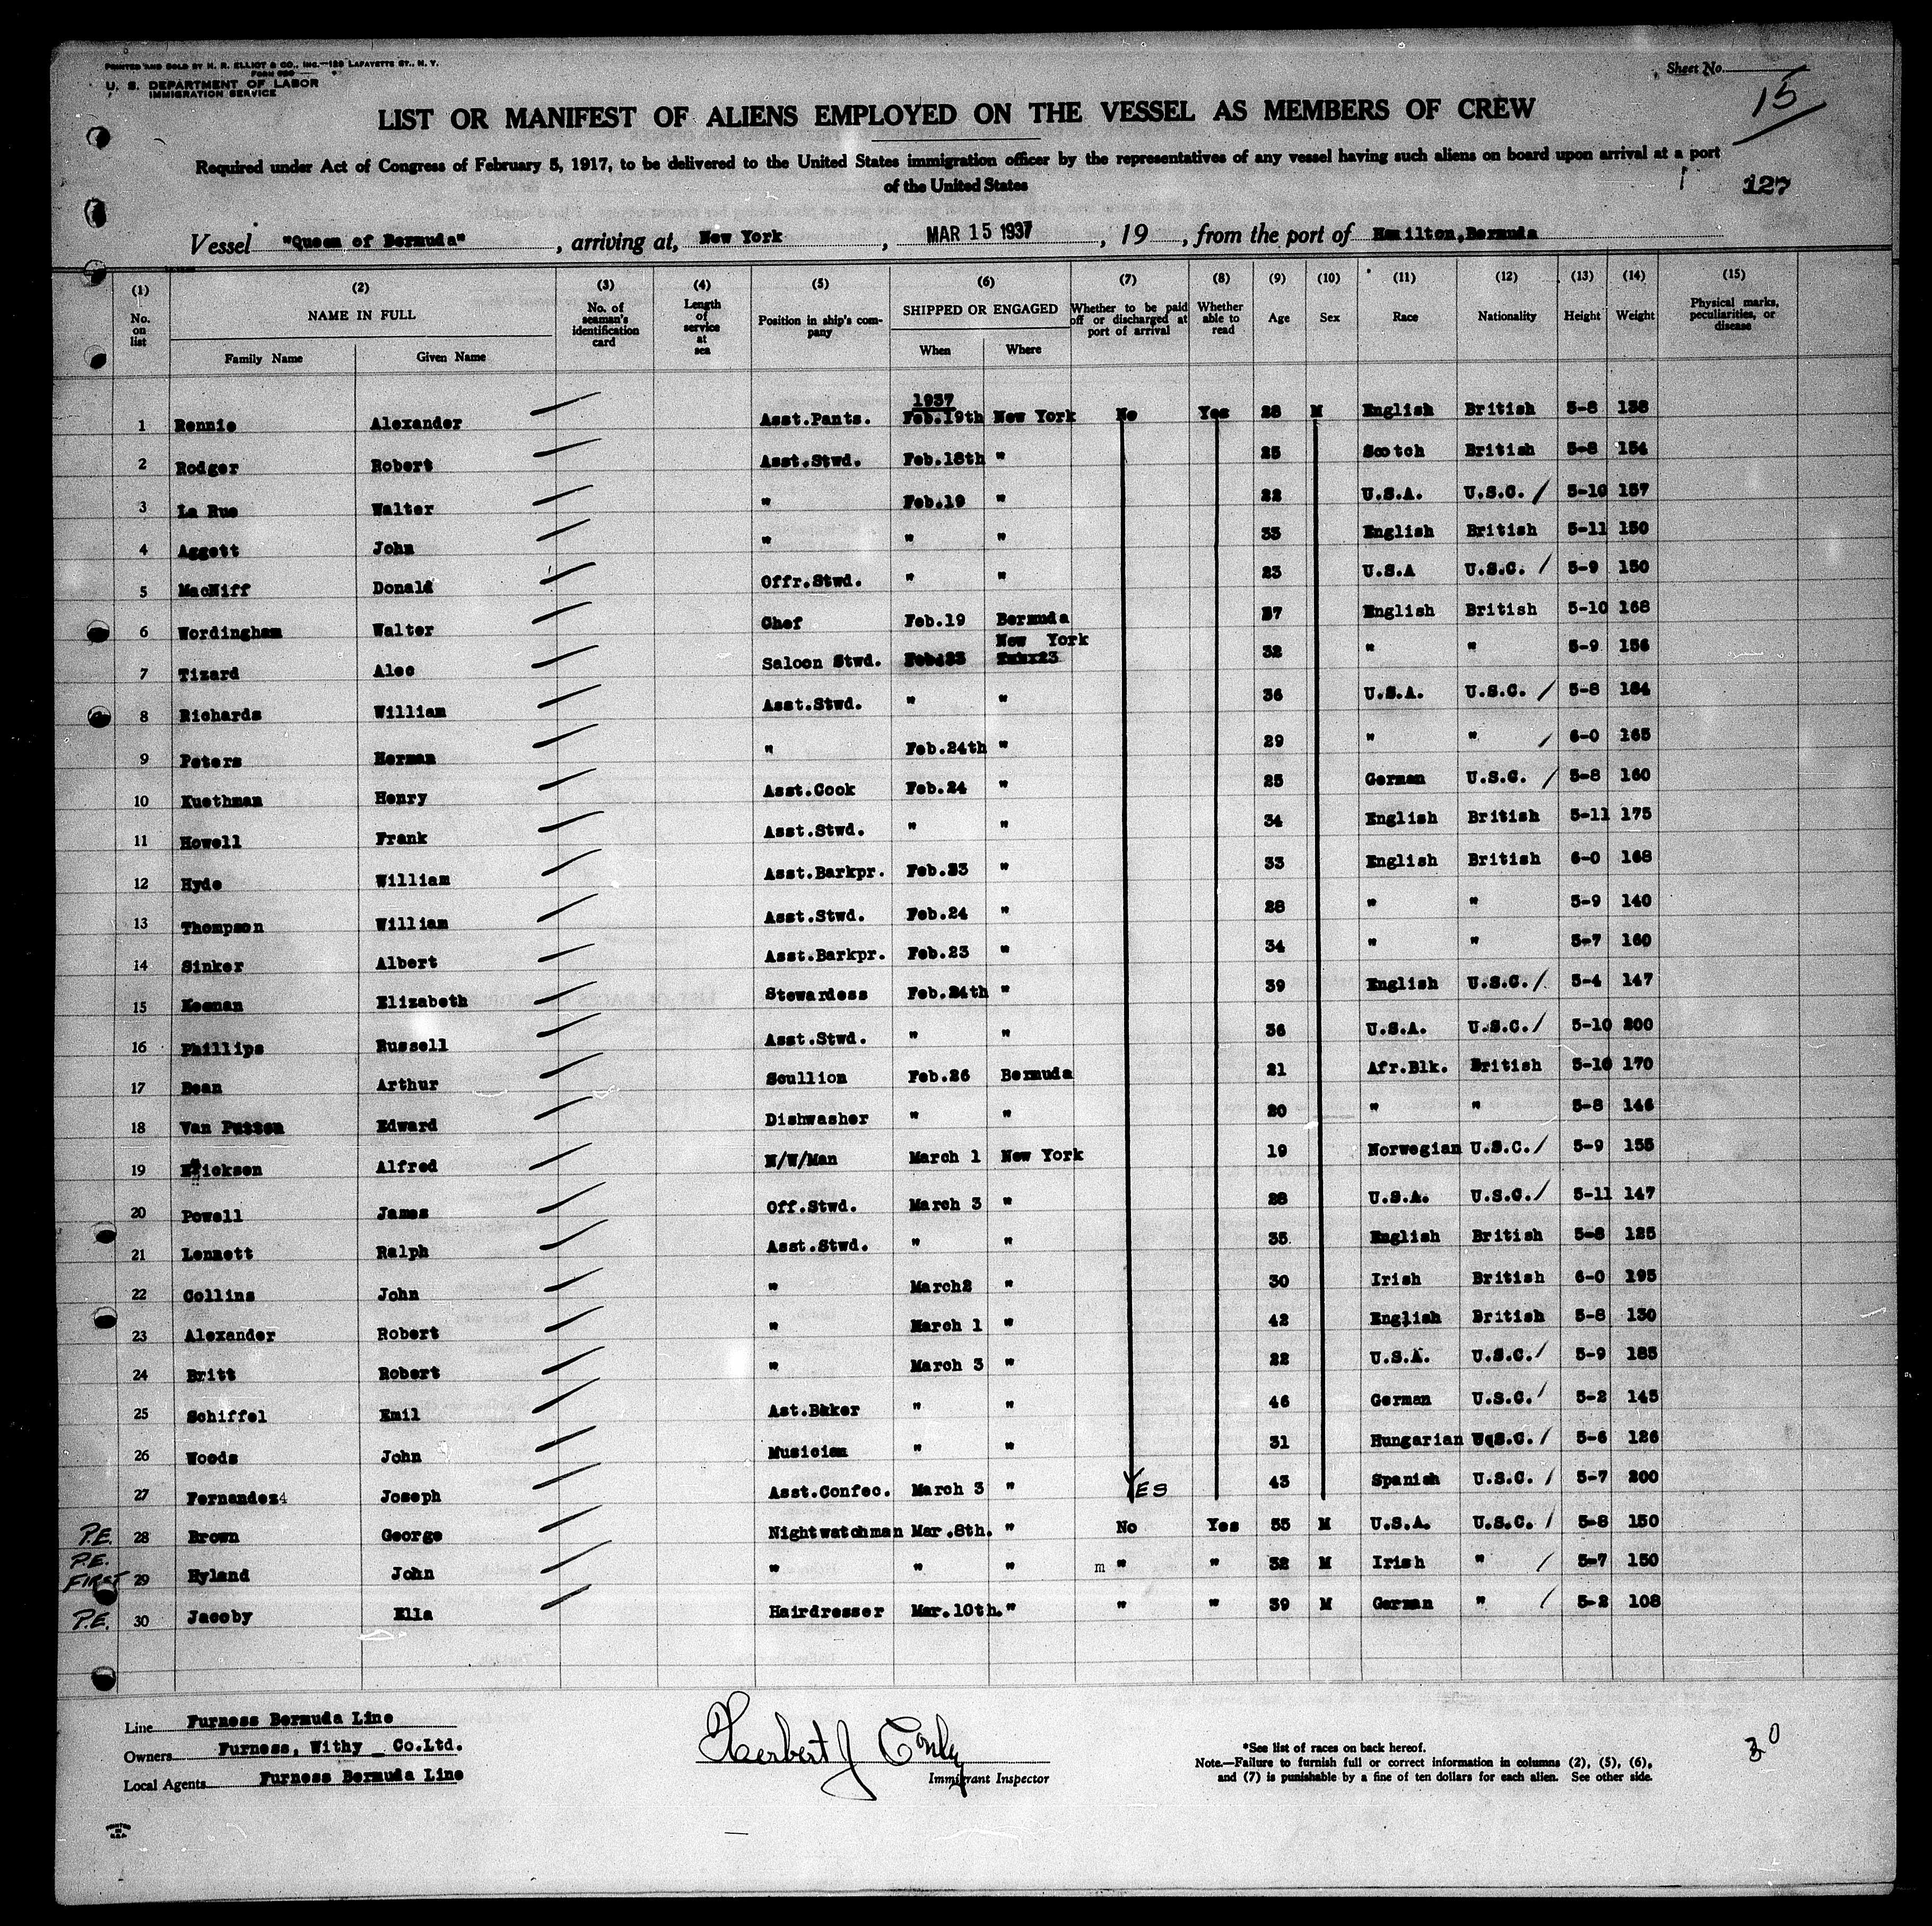 PRINTED AND SOLD BY H. R. ELLIOT & CO., INC.—129 LAFAYETTE ST., N. Y.
U. S. DEPARTMENT OF LABOR
IMMIGRATION SERVICE
Sheet No. 15
LIST OR MANIFEST OF ALIENS EMPLOYED ON THE VESSEL AS MEMBERS OF CREW
Required under Act of Congress of February 5, 1917, to be delivered to the United States immigration officer by the representatives of any vessel having such aliens on board upon arrival at a port
of the United States
127
Vessel "Queen of Bermuda", arriving at, New York, MAR 15 1937, 19 , from the port of Hamilton,Bermuda
(1) No. on list (2) NAME IN FULL Family Name Given Name (3) No. of seaman's identification card (4) Length of service at sea (5) Position in ship's company (6) SHIPPED OR ENGAGED When Where (7) Whether to be paid off or discharged at port of arrival (8) Whether able to read (9) Age (10) Sex (11) Race (12) Nationality (13) Height (14) Weight (15) Physical marks, peculiarities, or disease
1937
1 Rennie Alexander Asst.Pants. Feb.19th New York No Yes 28 M English British 5-8 138
2 Rodger Robert Asst.Stwd. Feb.18th " 25 Scotch British 5-8 154
3 La Rue Walter " Feb.19 " 22 U.S.A. U.S.C. / 5-10 157
4 Aggett John " " " 33 English British 5-11 150
5 MacNiff Donald Offr.Stwd. " " 23 U.S.A U.S.C. / 5-9 150
6 Wordingham Walter Chef Feb.19 Bermuda 27 English British 5-10 168
New York
7 Tizard Alec Saloon Stwd. Feb.23 32 " " 5-9 156
8 Richards William Asst.Stwd. " " 36 U.S.A. U.S.C. / 5-8 184
9 Peters Herman " Feb.24th " 29 " " / 6-0 165
10 Kuethman Henry Asst.Cook Feb.24 " 25 German U.S.C. / 5-8 160
11 Howell Frank Asst.Stwd. " " 34 English British 5-11 175
12 Hyde William Asst.Barkpr. Feb.23 " 33 English British 6-0 168
13 Thompson William Asst.Stwd. Feb.24 " 28 " " 5-9 140
14 Sinker Albert Asst.Barkpr. Feb.23 " 34 " " 5-7 160
15 Keenan Elizabeth Stewardess Feb.24th " 39 English U.S.C. / 5-4 147
16 Phillips Russell Asst.Stwd. " " 36 U.S.A. U.S.C. / 5-10 200
17 Bean Arthur Scullion Feb.26 Bermuda 21 Afr.Blk. British 5-10 170
18 Van Putten Edward Dishwasher " " 20 " " 5-8 146
19 Erickson Alfred N/W/Man March 1 New York 19 Norwegian U.S.C. / 5-9 155
20 Powell James Off.Stwd. March 3 " 28 U.S.A. U.S.C. / 5-11 147
21 Lennett Ralph Asst.Stwd. " " 35 English British 5-8 125
22 Collins John " March2 " 30 Irish British 6-0 195
23 Alexander Robert " March 1 " 42 English British 5-8 130
24 Britt Robert " March 3 " 22 U.S.A. U.S.C. / 5-9 185
25 Schiffel Emil Ast.Baker " " 46 German U.S.C. / 5-2 145
26 Woods John Musician " " 31 Hungarian U.S.C. / 5-6 126
27 Fernandez4 Joseph Asst.Confec. March 3 " YES 43 Spanish U.S.C. / 5-7 200
P.E. 28 Brown George Nightwatchman Mar.8th. " No Yes 55 M U.S.A. U.S.C. / 5-8 150
P.E. FIRST 29 Hyland John " " " m " " 32 M Irish " / 5-7 150
P.E. 30 Jacoby Ella Hairdresser Mar.10th. " " " 39 M German " / 5-2 108
Line Furness Bermuda Line
Owners Furness, Withy _ Co.Ltd.
Local Agents Furness Bermuda Line
Herbert J Conly
Immigrant Inspector
*See list of races on back hereof.
Note.—Failure to furnish full or correct information in columns (2), (5), (6),
and (7) is punishable by a fine of ten dollars for each alien. See other side.
30
PRINTED IN U.S.A.